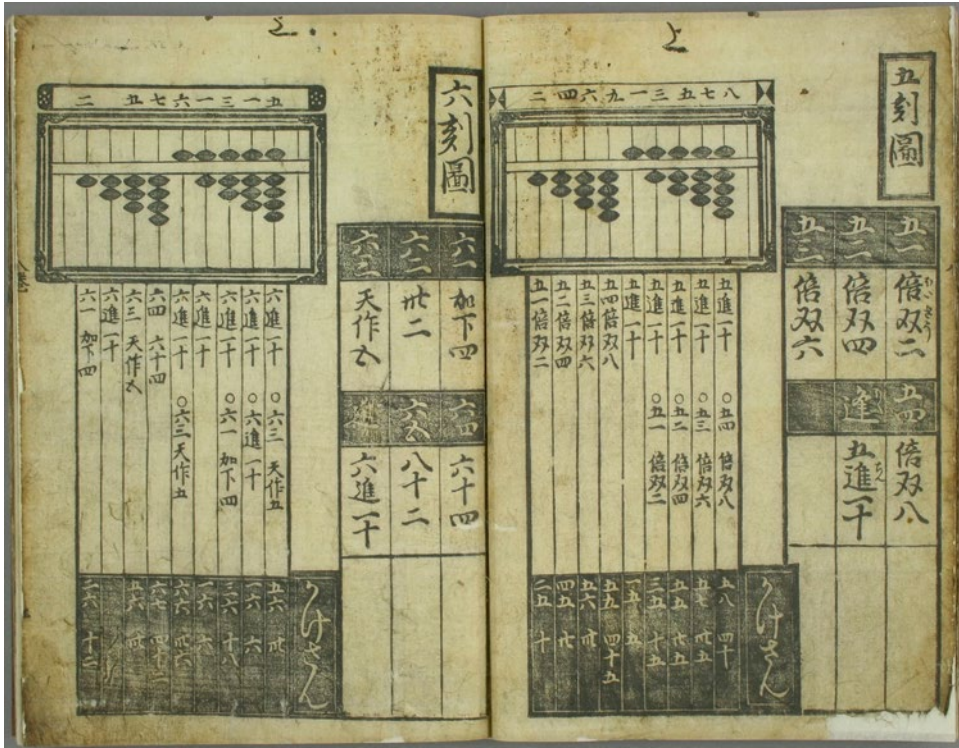 上
五刻圖
五一 倍双二
五二 倍双四
五三 倍双六
五四 倍双八
五進一十
八七五三一九六四二
五進一十 ○五四 倍双八
五進一十 ○五三 倍双六
五進一十 ○五二 倍双四
五進一十 ○五一 倍双二
五進一十
五四倍双八
五三倍双六
五二倍双四
五一倍双二
かけさん
五八 四十
五七 卅五
五五 廿五
三五 十五
一五 五
五九 四十五
五六 卅
四五 廿
二五 十
上
六刻圖
六一 加下四
六二 卅二
六三 天作五
六四 六十四
六五 八十二
進 六進一十
五一三一六七五二
六進一十 ○六三 天作五
六進一十 ○六進一十
六進一十 ○六一 加下四
六進一十
六進一十 ○六三天作五
六四 六十四
六三 天作五
六進一十
六一 加下四
かけさん
五六 卅
一六 六
三六 十八
一六 六
六六 卅六
六七 四十二
五六 卅
二六 十二